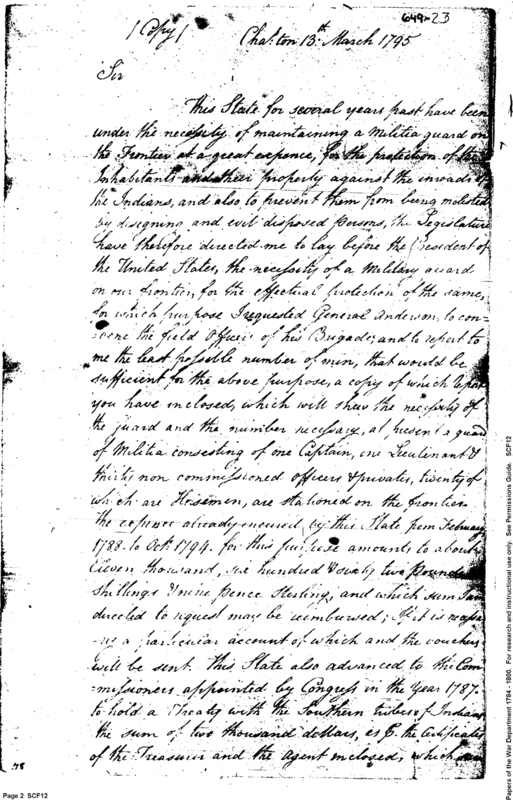 649-23
/ Copy / Chas:ton 13th March 1795
Sir
This State for several years past have been
under the necessity of maintaining a Militia guard on
the Frontier at a great expence, for the protection of the
Inhabitants and their property against the inroads of
the Indians, and also to prevent them from being molested
by designing and evil disposed persons, the Legislature
have therefore directed me to lay before the President of
the United States, the necessity of a Military guard
on our frontier, for the effectual protection of the same,
for which purpose I requested General Anderson, to con=
=vene the field Officers of his Brigade, and to report to
me the least possible number of men, that would be
sufficient for the above purpose, a copy of which report
you have inclosed, which will shew the necessity of
the guard and the number necessary, at present a guard
of Militia consesting of one Captain, one Lieutenant &
thirty non commissioned officers & privates, twenty of
which are Horsemen, are stationed on the frontier
The expence already incured by this State from February
1788 to Octr. 1794. for this purpose amounts to about
Eleven thousand, six hundred & sixty two Pounds
shillings & nine pence Sterling, and which sum I am
directed to request may be reimbursed; If it is necessa
=ry a particular account of which and the vouchers
will be sent. This State also advanced to the Com
=missioners appointed by Congress in the Year 1787.
to hold a Treaty with the Southern tribes of Indians
the sum of two thousand dollars, as P. the Certificates
of the Treasurer and the Agent inclosed, which
78
Page 2 SCF12
Papers of the War Department 1784 - 1800. For research and instructional use only. See Permissions Guide. SCF12